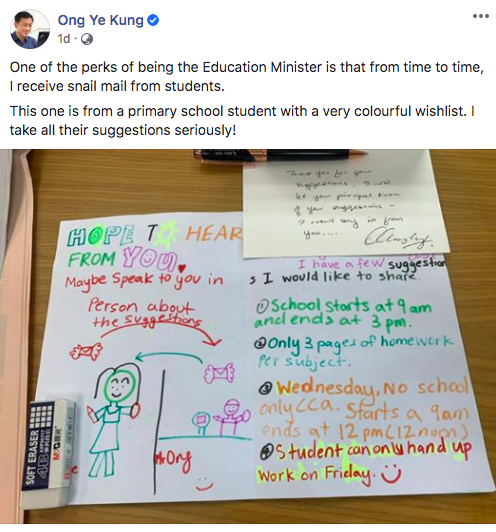 Ong Ye Kung
1d ·
One of the perks of being the Education Minister is that from time to time,
I receive snail mail from students.
This one is from a primary school student with a very colourful wishlist. I
take all their suggestions seriously!
Thank you for your
suggestions. I will
let your principal know
of your suggestions -
HOPE TO HEAR
FROM YOU.
Maybe Speak to you in
Person about
the suggestions
I have a few suggestion
s I would like to share.
① School starts at 9 am
and ends at 3 pm.
② Only 3 pages of homework
Per subject.
③ Wednesday, No school
only CCA. Starts a 9am
ends at 12 pm (12 noon)
④ Student can only hand up
Work on Friday.
Mr Ong
SOFT ERASER
4B
M&G